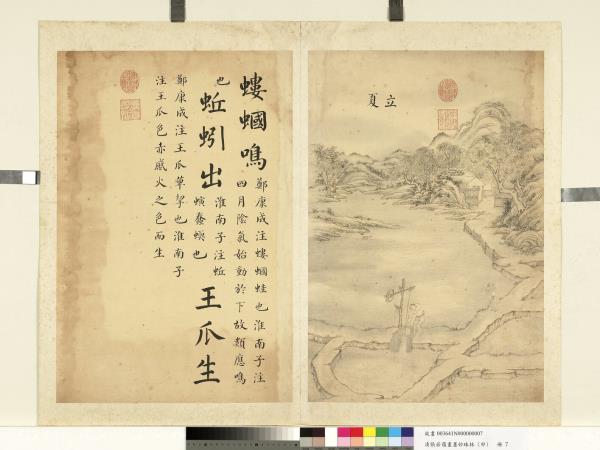 立夏
螻蟈鳴
鄭康成注螻蟈蛙也淮南子注
四月陰氣始動於下故類應鳴
也
蚯蚓出
淮南子注蚯
螾也
王瓜生
鄭康成注王瓜萆挈也淮南子
注王瓜色赤感火之色而生
故畫 003641N000000007
清張若靄畫墨妙珠林（卯） 冊 7